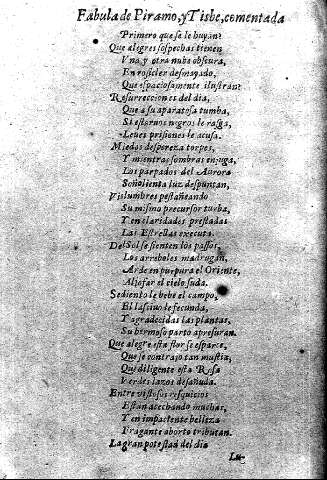 Fabula de Piramo, y Tisbe, comentada
Primero que se le huyan?
Que alegres sospechas tienen
Vna, y otra nube obscura,
En rosicler desmayado,
Que espaciosamente ilustran?
Resurrecciones del dia,
Que a su aparatosa tumba,
Si estornos negros le rasga,
Leues prisiones le acusa.
Miedos despereza torpes,
Y mientras sombras enjuga,
Los parpados del Aurora
Soñolienta luz despuntan,
Vislumbres pestañeando
Su mismo precursor turba,
Y en claridades prestadas
Las Estrellas executa.
Del Sol se sienten los passos,
Los arreboles madrugan,
Arde en purpura el Oriente,
Aljofar el cielo suda.
Sediento le bebe el campo,
El lasciuo le fecunda,
Y agradecidas las plantas,
Su hermoso parto apresuran.
Que alegre esta flor se esparce,
Que se contrajo tan mustia,
Que diligente esta Rosa
Verdes lazos desañuda.
Entre vistosos resquicios
Estan acechando muchas,
Y en impaciente belleza
Fragante aborto tributan.
La gran potestad del dia
Lu-